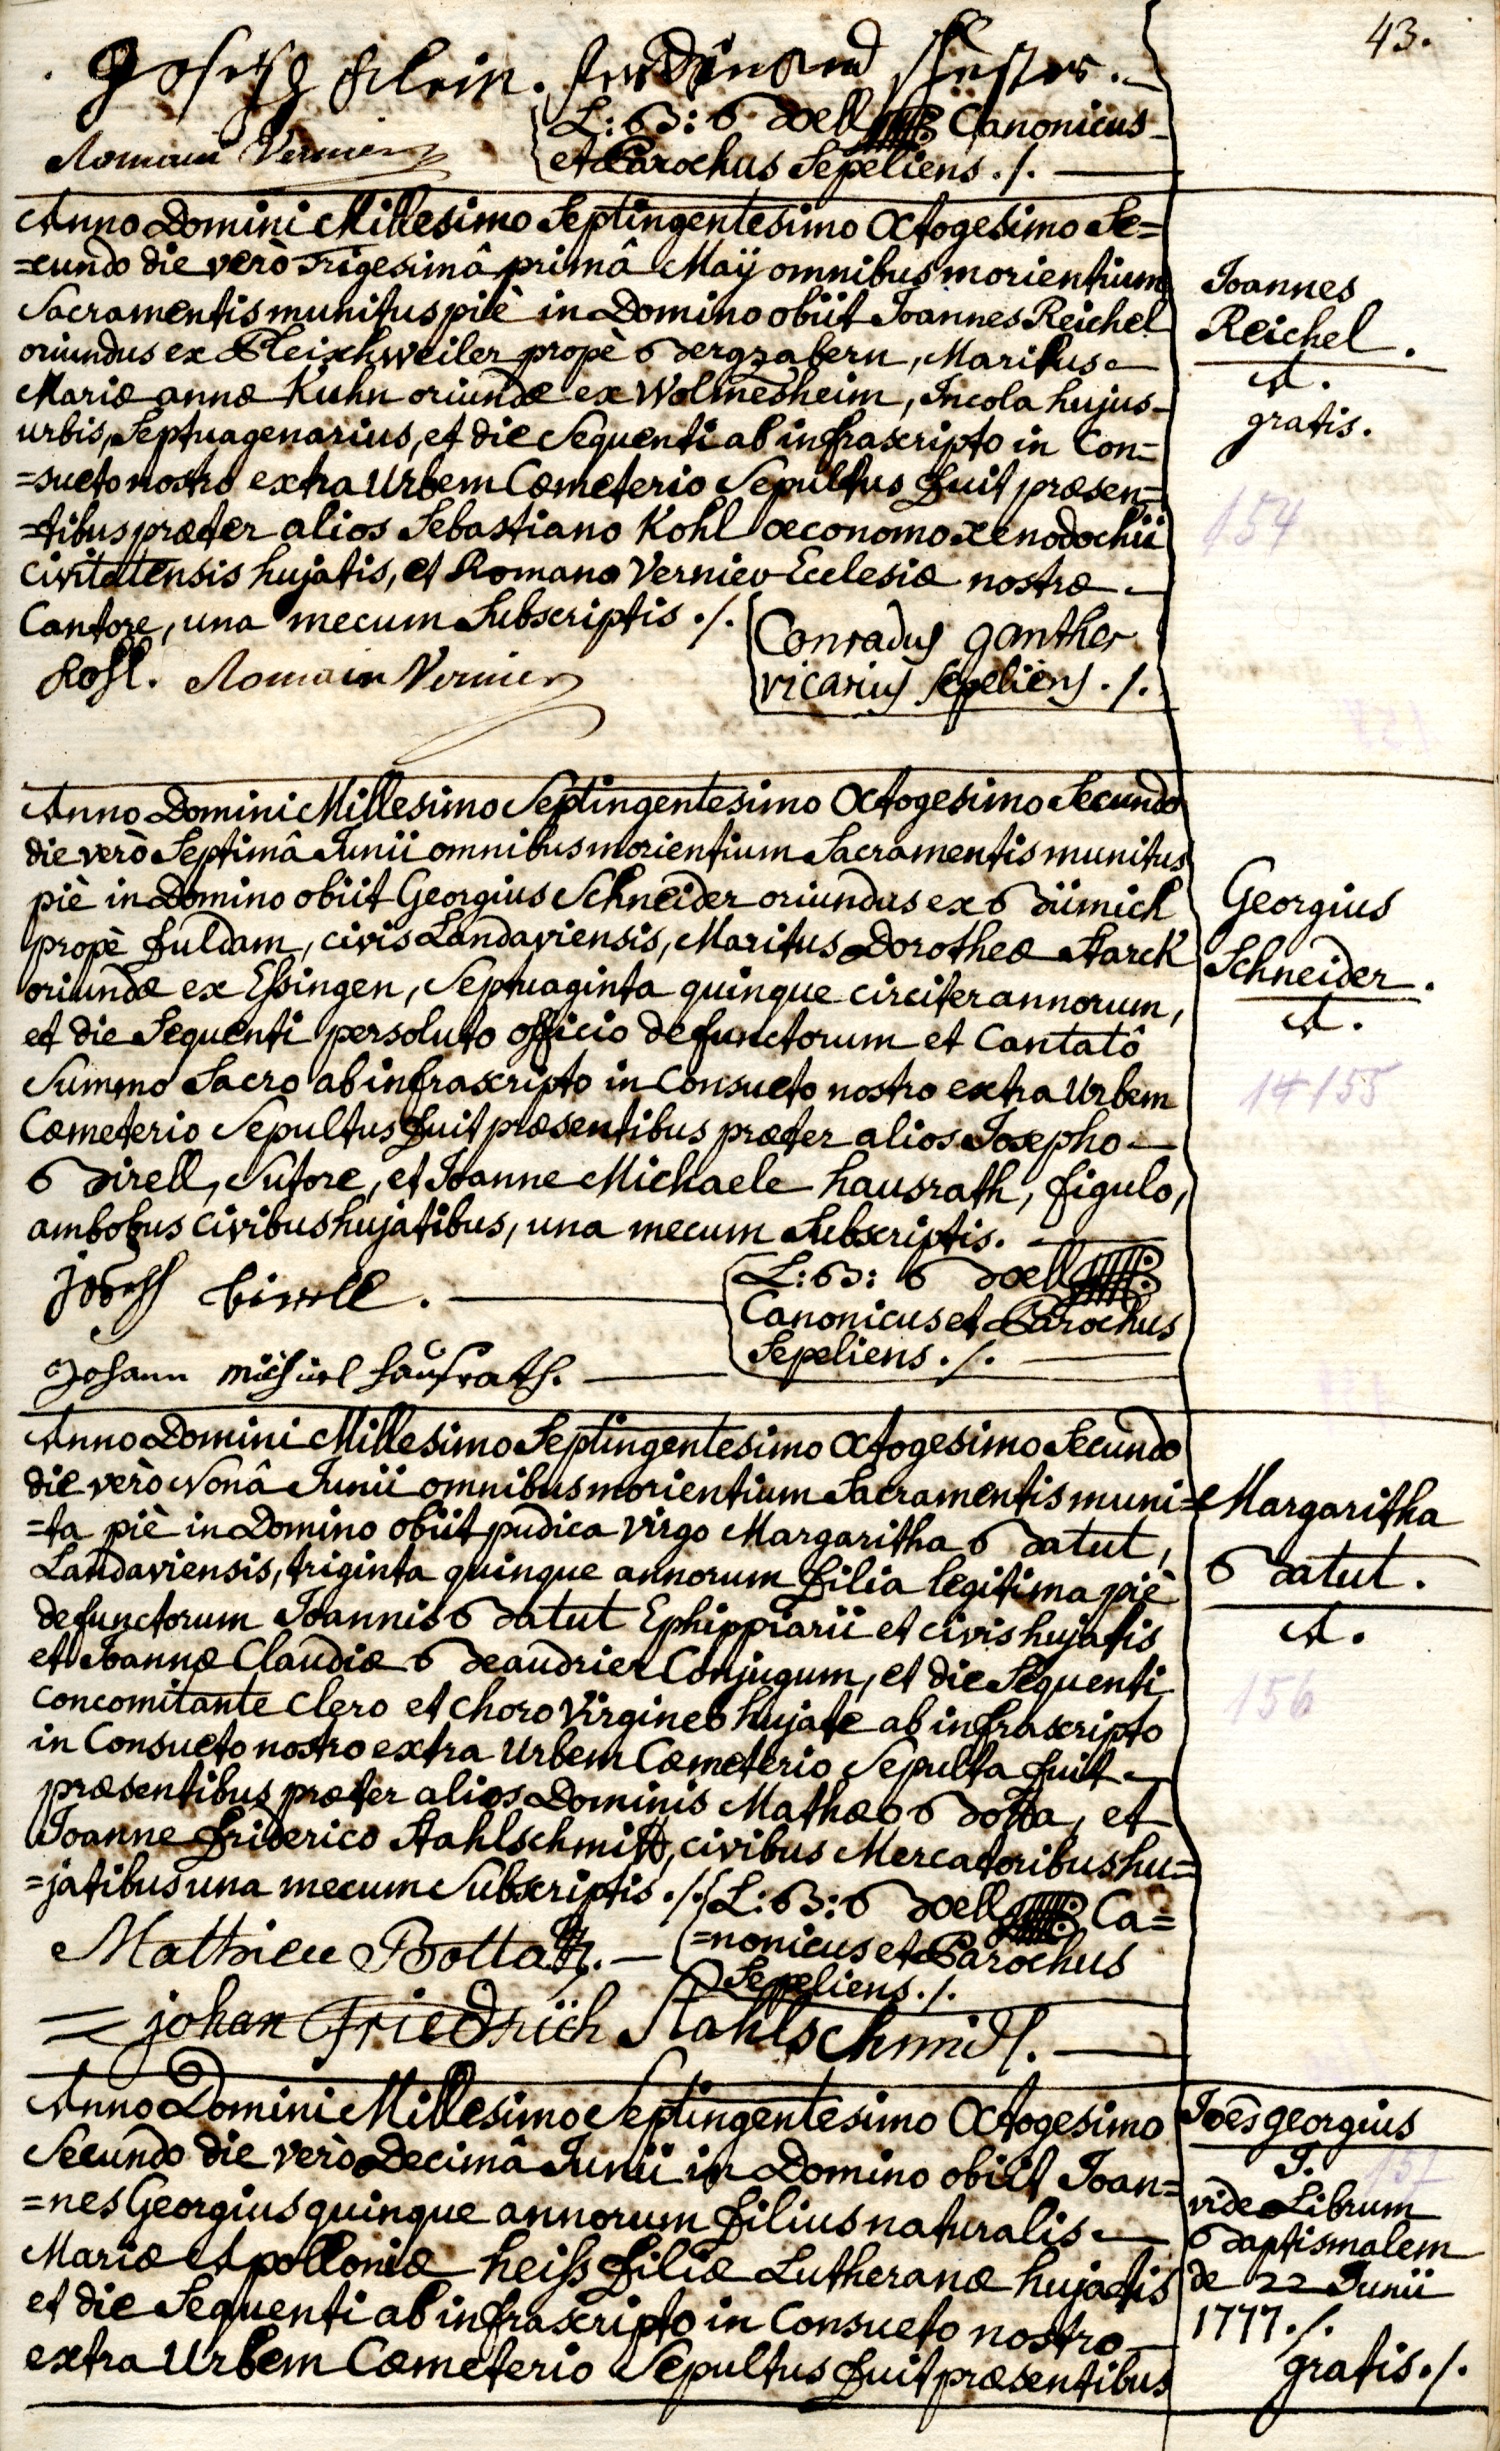 43.
Joseph Klein. Ferdinand
Romain Vernier
L: B: Boell Canonicus
et Parochus Sepeliens ./.
Anno Domini Millesimo Septingentesimo Octogesimo Se=
=cundo die verò Trigesimâ primâ Maÿ omnibus morientium
Sacramentis munitus piè in Domino obiit Joannes Reichel
oriundus ex Pleischweiler propè Bergzabern, Maritus
Mariæ annæ Kuhn oriundæ ex Wolmesheim, Incola hujus
urbis, Septuagenarius, et die Sequenti ab infrascripto in Con=
=sueto nostro extra Urbem Cœmeterio Sepultus fuit præsen=
=tibus præter alios Sebastiano Kohl œconomo xenodochii
civitatensis hujatis, et Romano Vernier Ecclesiæ nostræ
Cantore, una mecum Subscriptis ./.
Kohl. Romain Vernier
Conradus ganther
vicarius sepeliens ./.
Joannes
Reichel.
A.
gratis.
154
Anno Domini Millesimo Septingentesimo Octogesimo Secundo
die verò Septimâ Junii omnibus morientium Sacramentis munitus
piè in Domino obiit Georgius Schneider oriundus ex Bümich
propè fuldam, civis Landaviensis, Maritus Dorotheæ Starck
oriundæ ex Essingen, Septuaginta quinque circiter annorum,
et die Sequenti persoluto officio defunctorum et Cantatô
Summo Sacro ab infrascripto in Consueto nostro extra Urbem
Cœmeterio Sepultus fuit præsentibus præter alios Josepho
Birell, Sutore, et Joanne Michaele hausrath, figulo,
ambobus civibus hujatibus, una mecum Subscriptis.
joseph birell.
Johann michael hausrath.
L: B: Boell
Canonicus et Parochus
Sepeliens ./.
Georgius
Schneider.
A.
14 155
Anno Domini Millesimo Septingentesimo Octogesimo Secundo
die verò Nonâ Junii omnibus morientium Sacramentis muni=
=ta piè in Domino obiit pudica virgo Margaritha Batut,
Landaviensis, triginta quinque annorum filia legitima piè
defunctorum Joannis Batut Ephippiarii et civis hujatis
et Joannæ Claudiæ Beaudrier Conjugum, et die Sequenti
concomitante Clero et choro Virgineo hujate ab infrascripto
in Consueto nostro extra Urbem Cœmeterio Sepulta fuit
præsentibus præter alios Dominis Mathæo Botta, et
Joanne friderico Stahlschmitt, civibus Mercatoribus hu=
=jatibus una mecum Subscriptis ./.
L: B: Boell Ca=
=nonicus et Parochus
Sepeliens ./.
Mathieu Botta
johan Friedrich Stahlschmidt.
Margaritha
Batut.
A.
156
Anno Domini Millesimo Septingentesimo Octogesimo
Secundo die verò Decimâ Junii in Domino obiit Joan=
=nes Georgius quinque annorum filius naturalis
Mariæ Apolloniæ heiss filiæ Lutheranæ hujatis
et die Sequenti ab infrascripto in Consueto nostro
extra Urbem Cœmeterio Sepultus fuit præsentibus
Joēs georgius
J. 157
vide Librum
Baptismalem
de 22 Junii
1777 ./.
gratis ./.